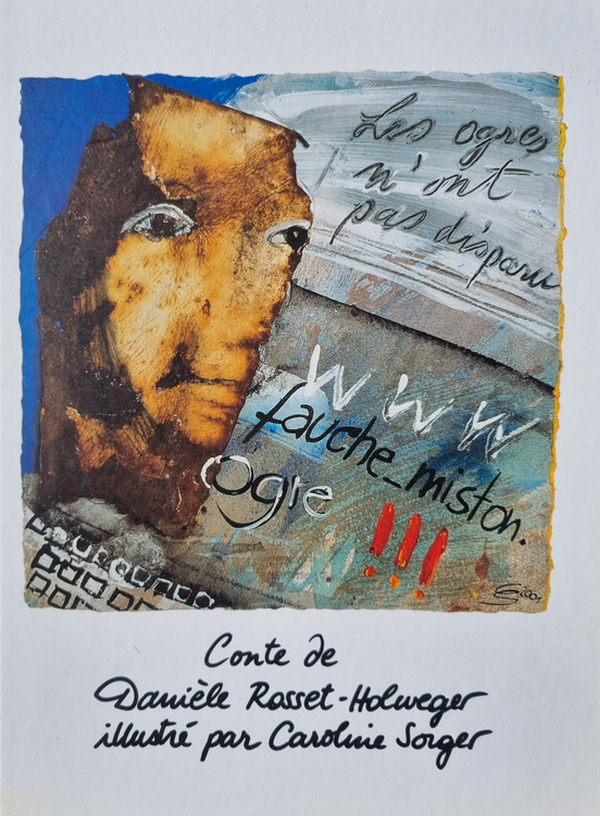 Les ogres
n'ont
pas disparu
W W W
fauche_miston.
ogre
!!!
2001
Conte de
Danièle Rosset-Holweger
illustré par Caroline Sorger